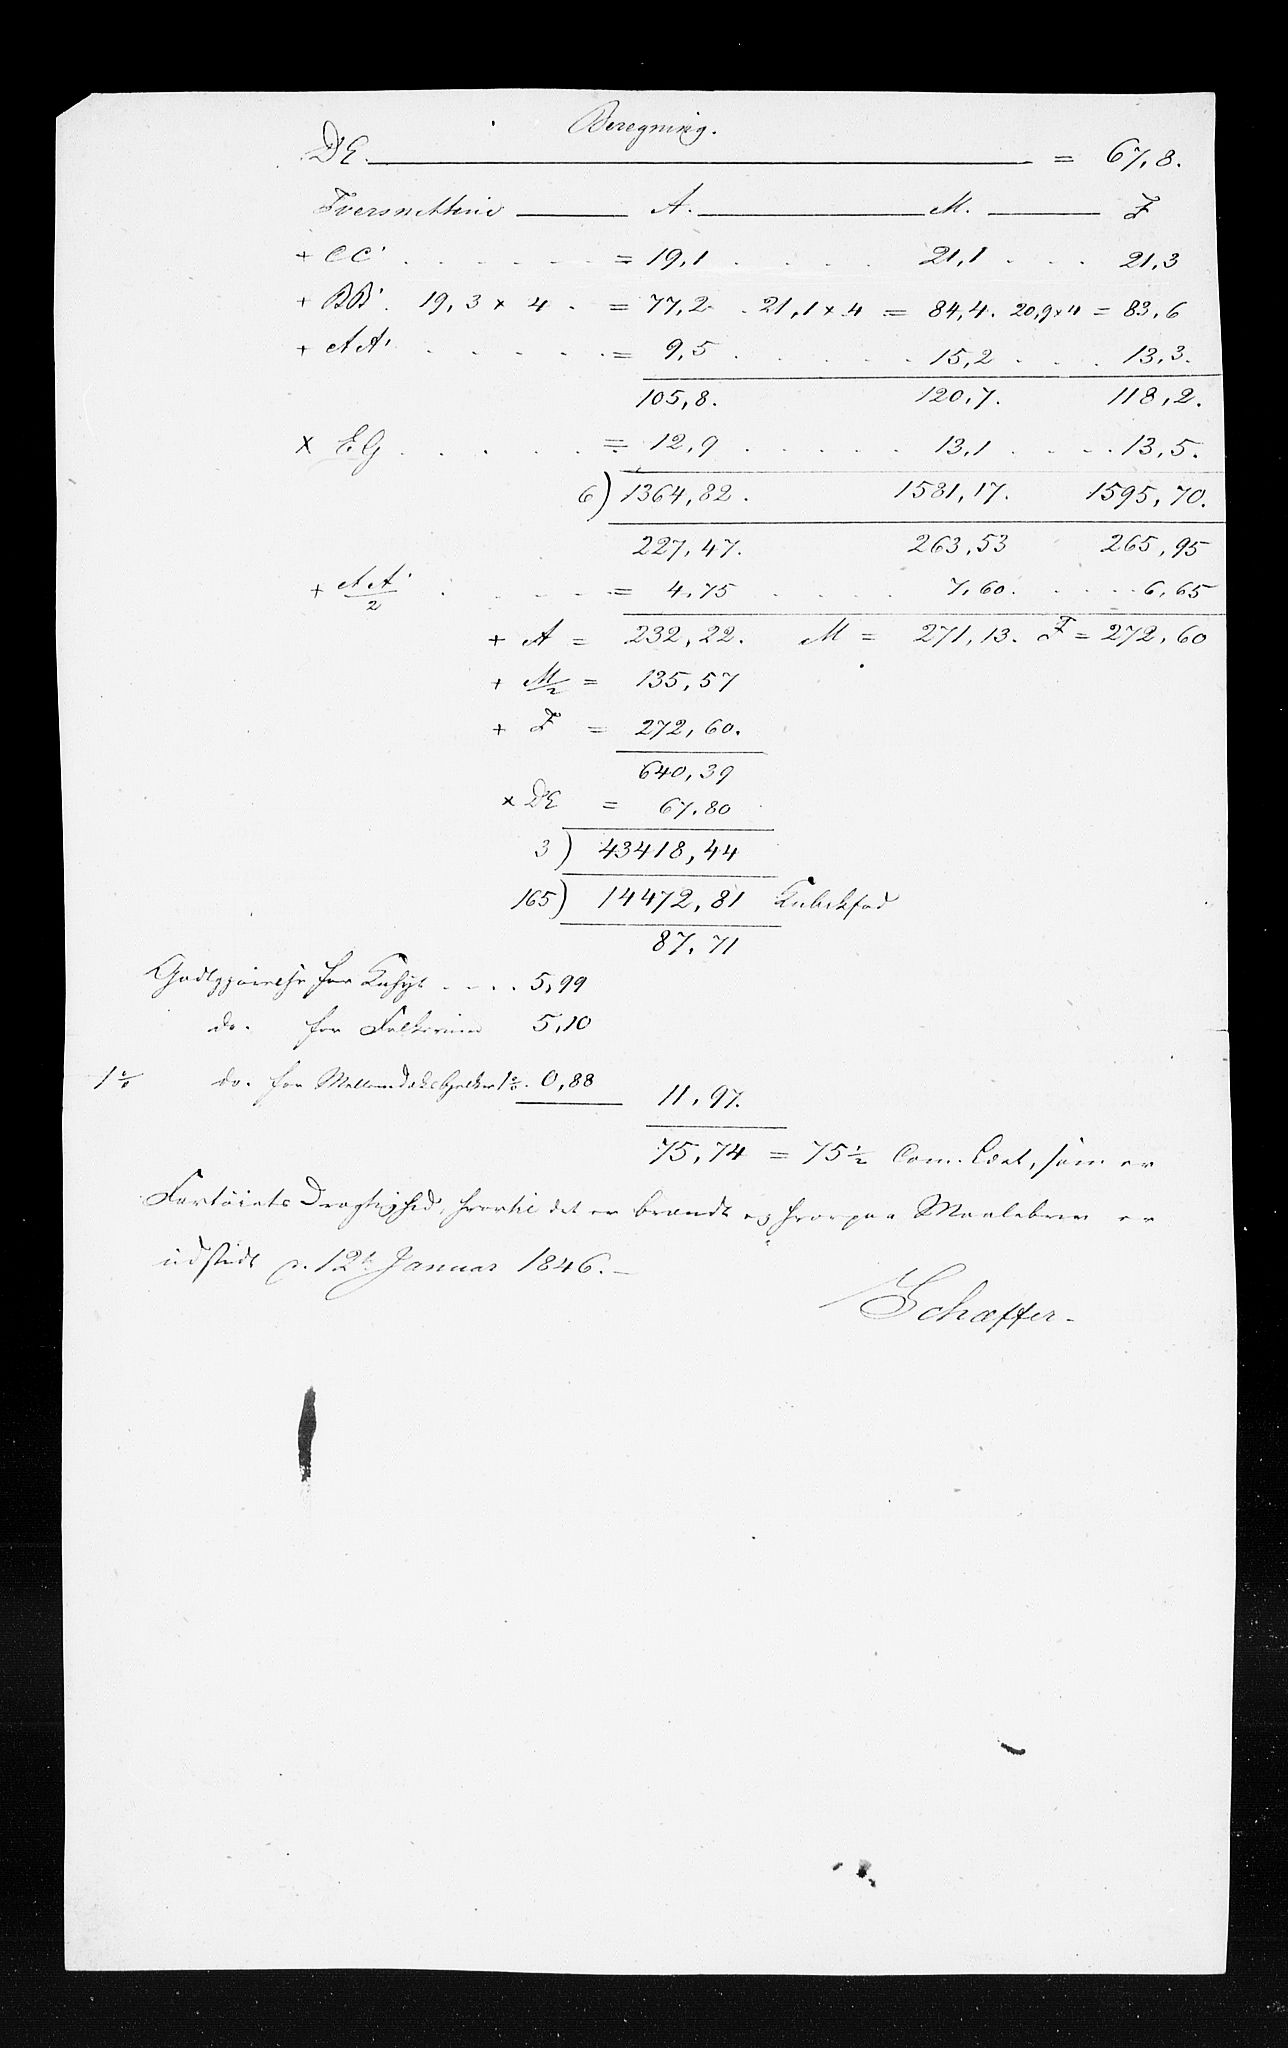 Beregning.
DE. = 67,8.
Tversnittene A. M. F
+ CC' . . . . . . = 19,1 . . . . . 21,1 . . . . 21,3
+ BB'. 19,3 × 4 . = 77,2 . 21,1 × 4 = 84,4. 20,9 × 4 = 83,6
+ AA' . . . . . . = 9,5 . . . . . . 15,2 . . . . 13,3.
105,8. 120,7. 118,2.
× EG . . . . . = 12,9 . . . . . . 13,1 . . . . 13,5.
6) 1364,82. 1581,17. 1595,70.
227,47. 263,53 265,95
+ AA'/2 . . . . . = 4,75 . . . . . 7,60. . . . . 6,65
+ A = 232,22. M = 271,13. F = 272,60
+ M/2 = 135,57
+ F = 272,60.
640,39
× DE = 67,80
3) 43418,44
165) 14472,81 Kubikfod
87,71
Godtgjørelse for Kahyt . . . . 5,99
do. for Folkerum 5,10
1 % do. for Mellemdæksbjelker 1 %. 0,88 11,97.
75,74 = 75½ Com. Læst, som er
Fartøiets Drægtighed, hvortil det er brændt og hvorpaa Maalebrev er
udstedt d. 12t Januar 1846. –
Schæffer.